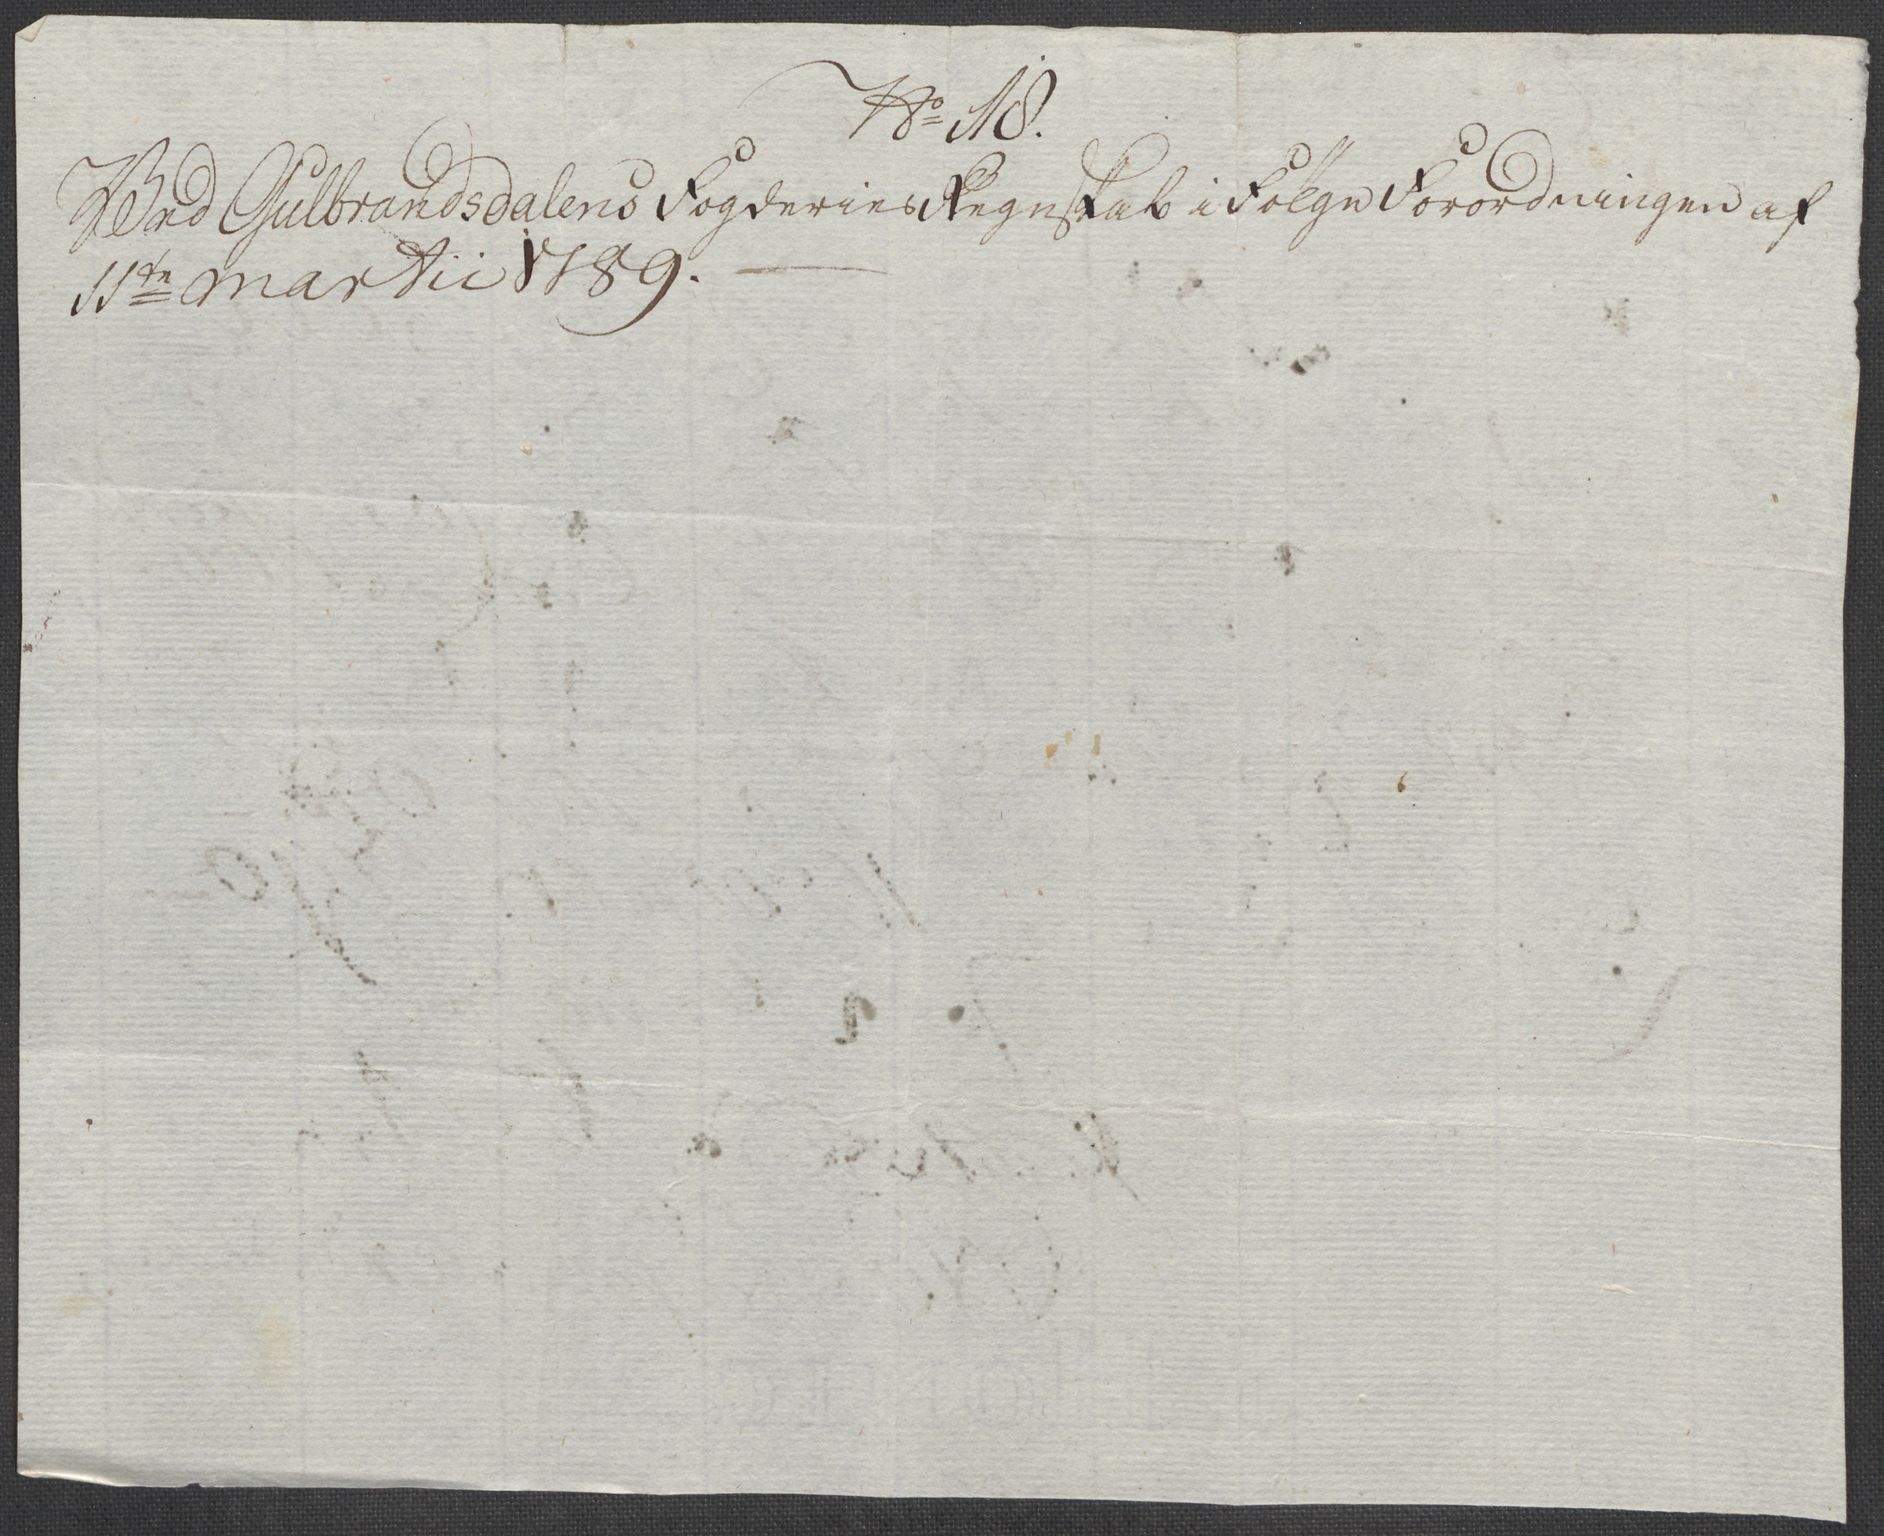 No 18.
Ved Gulbrandsdalens Fogderies Regnskab i Følge Forordningen af
11te Martii 1789.